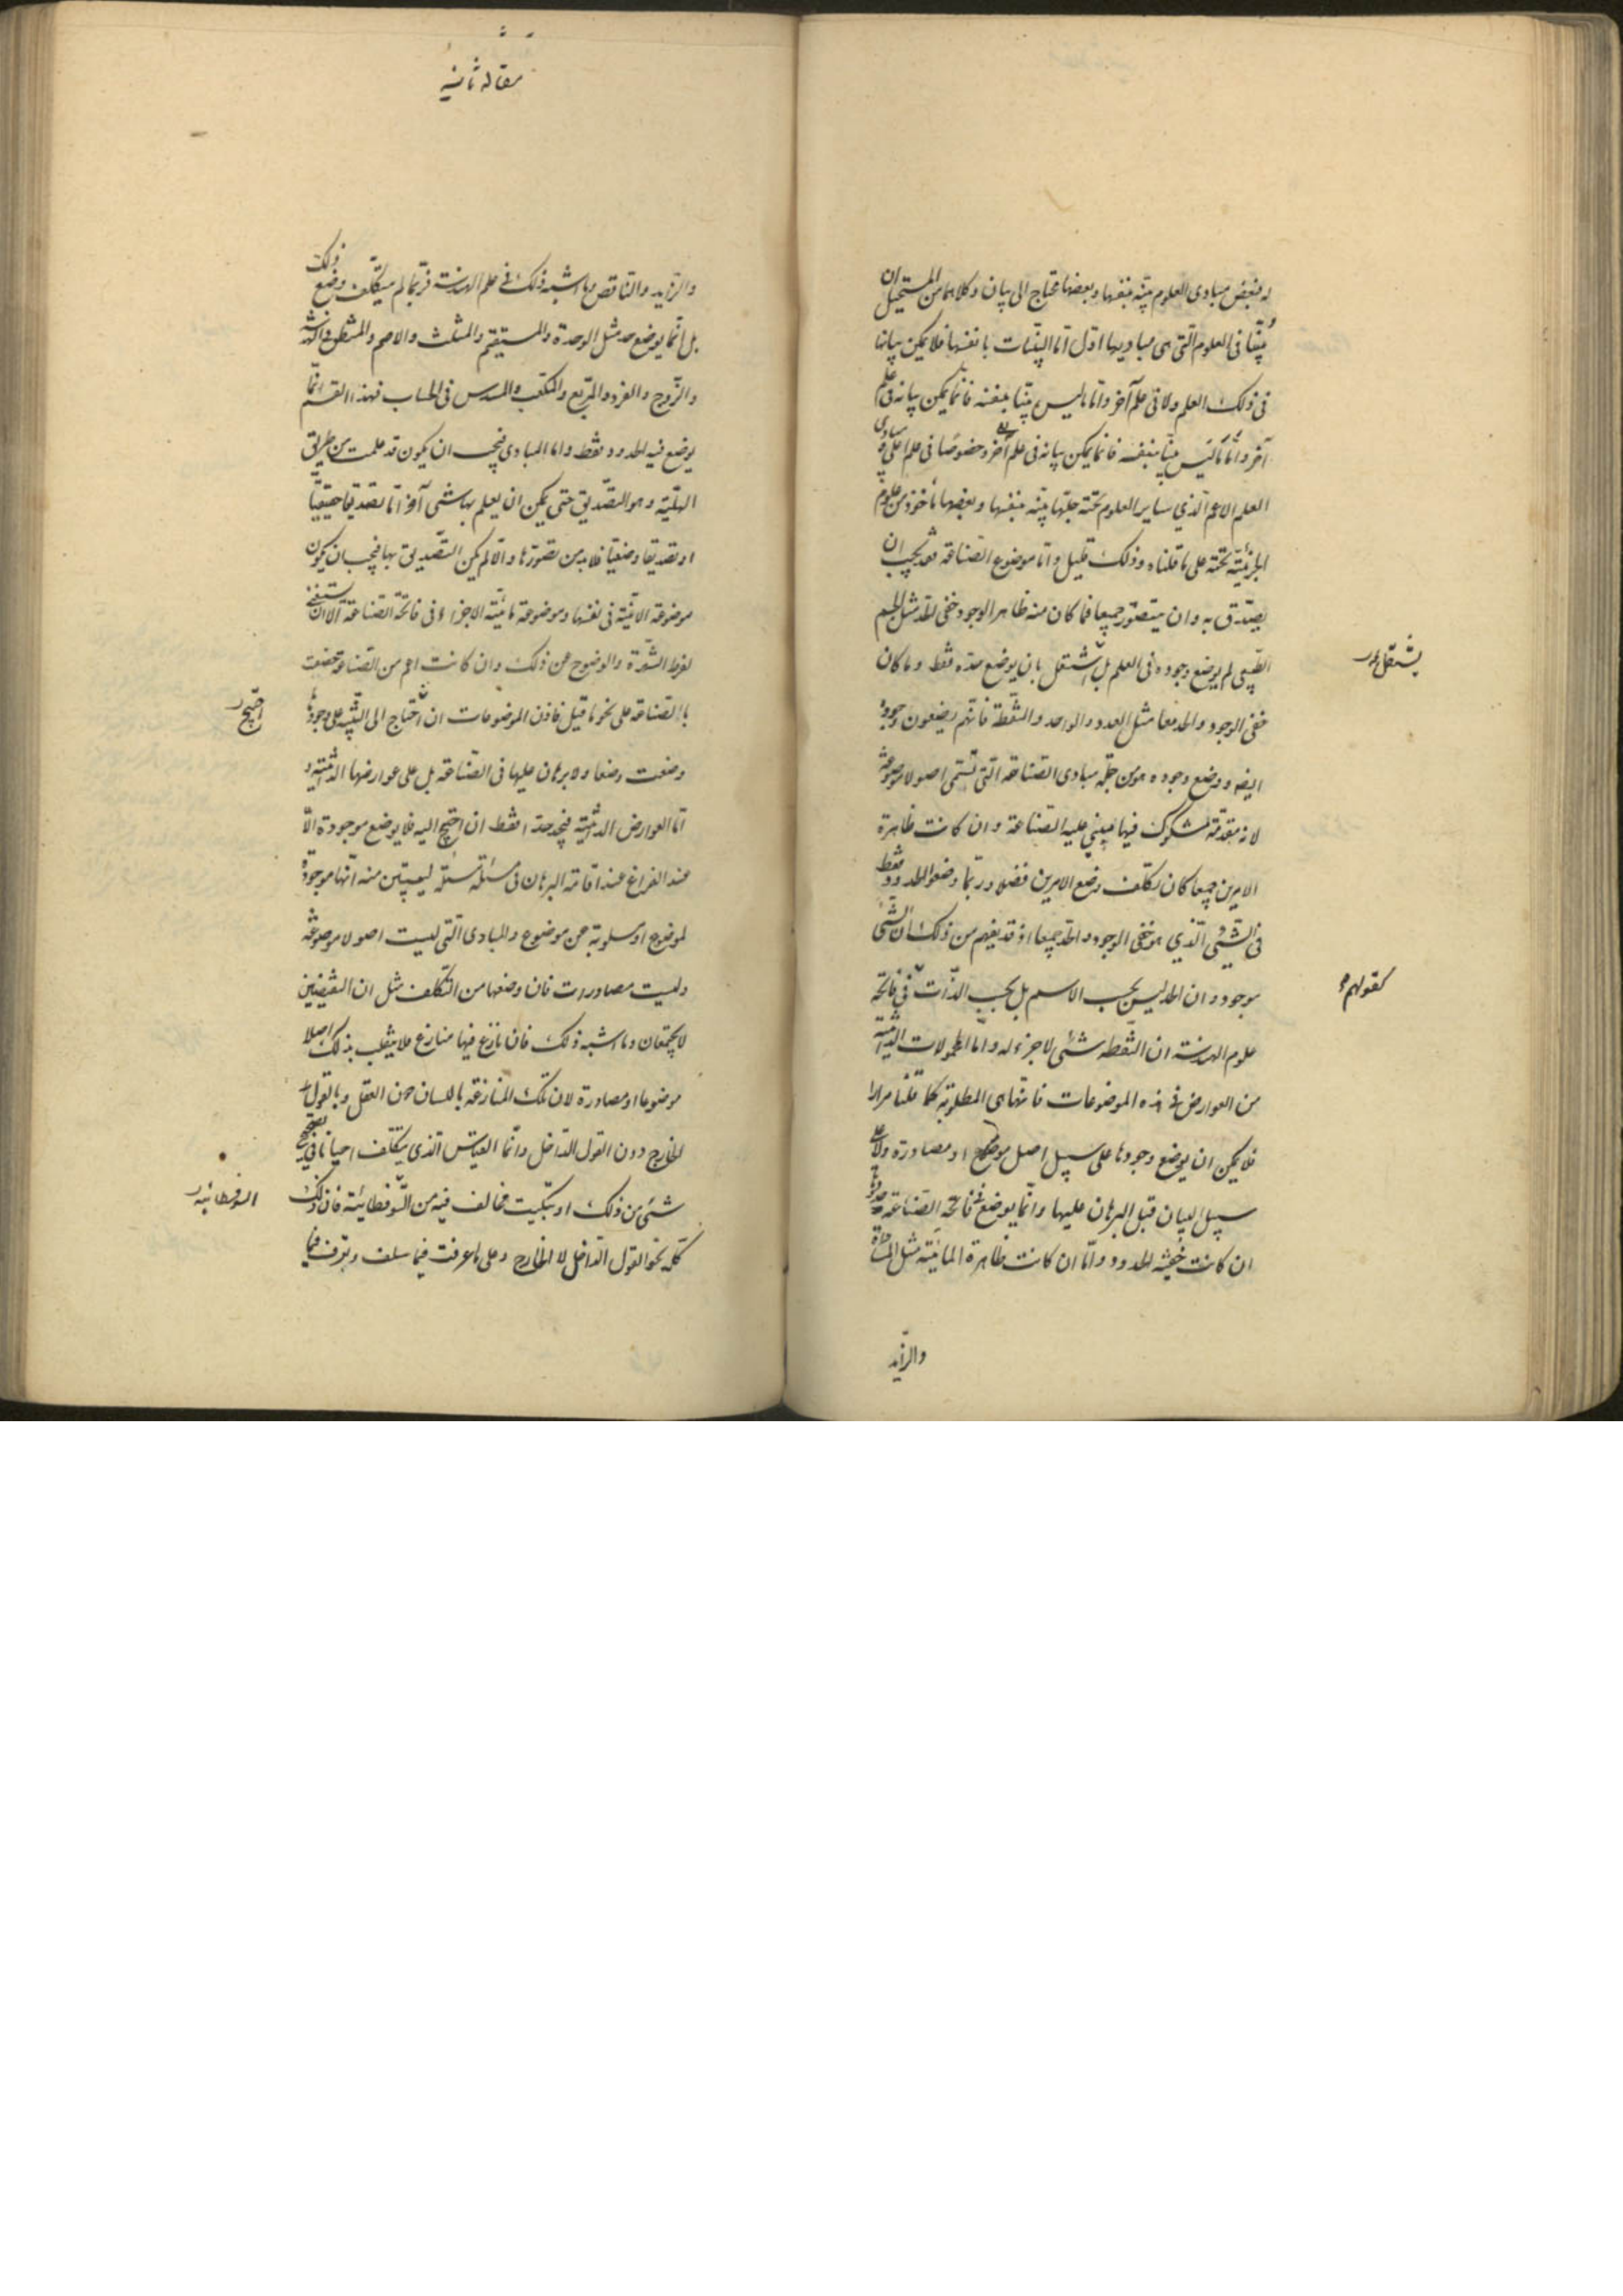 له فبعض مبادى العلوم بينة بنفسها وبعضها محتاج الى بيان وكلاهما من المستحيل ان
يبينا فى العلوم التى هى مباديها اول اما البينات بانفسها فلا يمكن بيانها
فى ذلك العلم ولا فى علم آخر واما ما ليس بينا بنفسه فانما يمكن بيانه فى علم
آخر واما ما ليس بينا بنفسه فانما يمكن بيانه فى علم آخر وخصوصا فى علم اعلى ومبادى
العلم الاعم الذي ساير العلوم تحته جلها بينه بنفسها وبعضها مأخوذ من علوم
الجزئية تحته على ما قلناه وذلك قليل واما موضوع الصناعة فقد يجب ان
يصدق به وان يتصور جميعا فما كان منه ظاهر الوجود خفى الحد مثل الجسم
الطبيعى لم يوضع وجوده فى العلم بل اشتغل بان يوضع حده فقط وما كان
خفى الوجود والحد معا مثل العدد والواحد والنقطة فانهم يضعون وجوده
ايضه ووضع وجوده هو من جملة مبادى الصناعة التى تسمى اصولا موضوعة
لانه مقدمة مشكوك فيها يبنى عليه الصناعة وان كانت ظاهرة
الامرين جميعا كان تكلف وضع الامرين فضلا وربما وضعوا الحدود فقط
فى الشئ الذي هو خفى الوجود والحد جميعا اذ قد يفهم من ذلك ان الشئ
موجود وان الحد ليس بحسب الاسم بل بحسب الذات فى فاتحة
علوم الهندسة ان النقطه شئى لا جزء له واما المحمولات الذاتية
من العوارض فى هذه الموضوعات فانها هى المطلوبة كما قلنا مرارا
فلا يمكن ان يوضع وجودها على سبيل اصل موضوع او مصادرة ولا على
سبيل البيان قبل البرهان عليها وانما يوضع فى فاتحة الصناعة حدودها
ان كانت خفية الحدود واما ان كانت ظاهرة المائية مثل المساواة
والزايد
يشتغل
كقولهم
مقاله ثانيه
والزايد والناقص وما اشبه ذلك فى علم الهندسة فربما لم يتكلف وضع ذلك
بل انما يوضع حد مثل الوحدة والمستقيم والمثلث والاصم والمنطق فى الهندسة
والزوج والفرد والمربع والمكعب والمسدس فى الحساب فهذا القسم انما
يوضع فيه الحدود فقط واما المبادى فيجب ان يكون قد علمت من طريق
الهلية وهو التصديق حتى يمكن ان يعلم بها شئى آخر اما تصديقا حقيقيا
او تصديقا وضعيا فلابد من تصورها والا لم يكن التصديق بها فيجب ان يكون
موضوعة الانية فى نفسها وموضوعة مائية الاجزاء فى فاتحة الصناعة الا ان يستغنى
لفرط الشهرة والوضوح عن ذلك وان كانت اعم من الصناعة خصصت
بالصناعة على نحو ما قيل فاذن الموضوعات ان احتاج الى التنبيه على وجودها
وضعت وضعا ولا برهان عليها فى الصناعة بل على عوارضها الذاتية و
اما العوارض الذاتية فيحد حدا فقط ان احتيج اليه فلا يوضع موجودة الا
عند الفراغ عند اقامة البرهان فى مسئلة مسئلة ليبيتن منه انها موجودة
لموضوع او مسلوبة عن موضوع والمبادى التى ليست اصولا موضوعة
وليست مصادرات فان وضعها من التكلف مثل ان النقيضين
لا يجتمعان وما اشبه ذلك فان نازع فيها منازع فلا ينقلب بذلك اصلا
موضوعا او مصادرة لان تلك المنازعة باللسان دون العقل وبالقول
الخارج دون القول الداخل وانما القياس الذى يتكلف احيانا فى تصحيح
شئى من ذلك او تبكيت مخالف فيه من السوفطائية فان ذلك
كله نحو القول الداخل لا الخارج وعلى ما عرفت فيما سلف وتعرف فيما
احتيج
السوفسطائيه